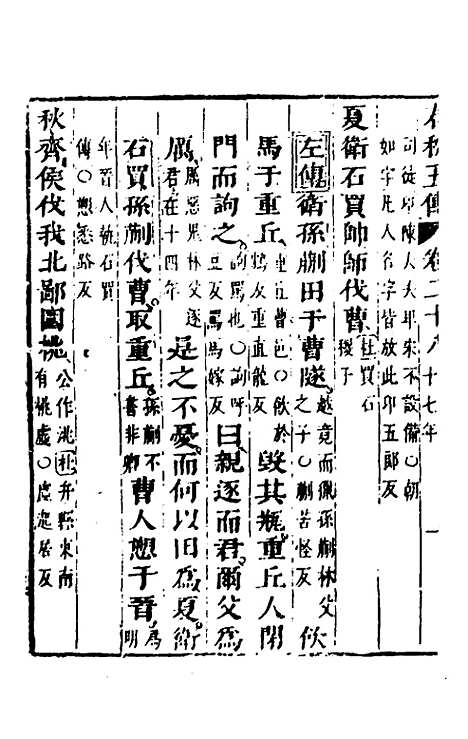 春秋五傳 卷二十八 十七年 一
司徒卬陳大夫卑宋不設備○朝
如字凡人名字皆放此卬五郎反
夏衛石買帥師伐曹 杜買石稷子
左傳衛孫蒯田于曹隧 越竟而獵孫蒯林父之子○蒯苦怪反 飲
馬于重丘 重丘曹邑○飲於鴆反重直龍反 毀其瓶重丘人閉
門而詢之 詢罵也○詢呼豆反罵馬嫁反 曰親逐而君爾父為
厲 厲惡鬼林父逐君在十四年 是之不憂而何以田為夏衛
石買孫蒯伐曹取重丘 孫蒯不書非卿 曹人愬于晉 為明
年晉人執石買
傳○愬悉路反
秋齊侯伐我北鄙圍桃 公作洮杜弁縣東南有桃虛○虛起居反